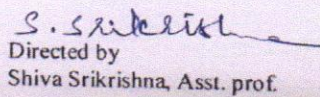 S. Srikrishna
Directed by
Shiva Srikrishna, Asst. prof.